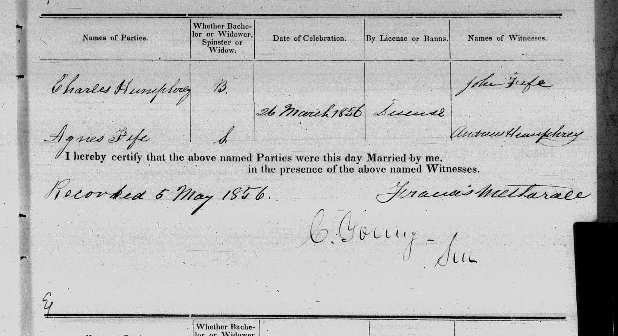 Names of Parties. Whether Bachelor or Widower, Spinster or Widow. Date of Celebration. By License or Banns. Names of Witnesses.
Charles Humphrey B. John Fife
26 March 1856 Lisense
Agnes Fife S. Andrew Humphrey
I hereby certify that the above named Parties were this day Married by me,
in the presence of the above named Witnesses.
Recorded 5 May 1856. Francis
C. Gourly
Names of Parties. Whether Bache-
lor or Widower